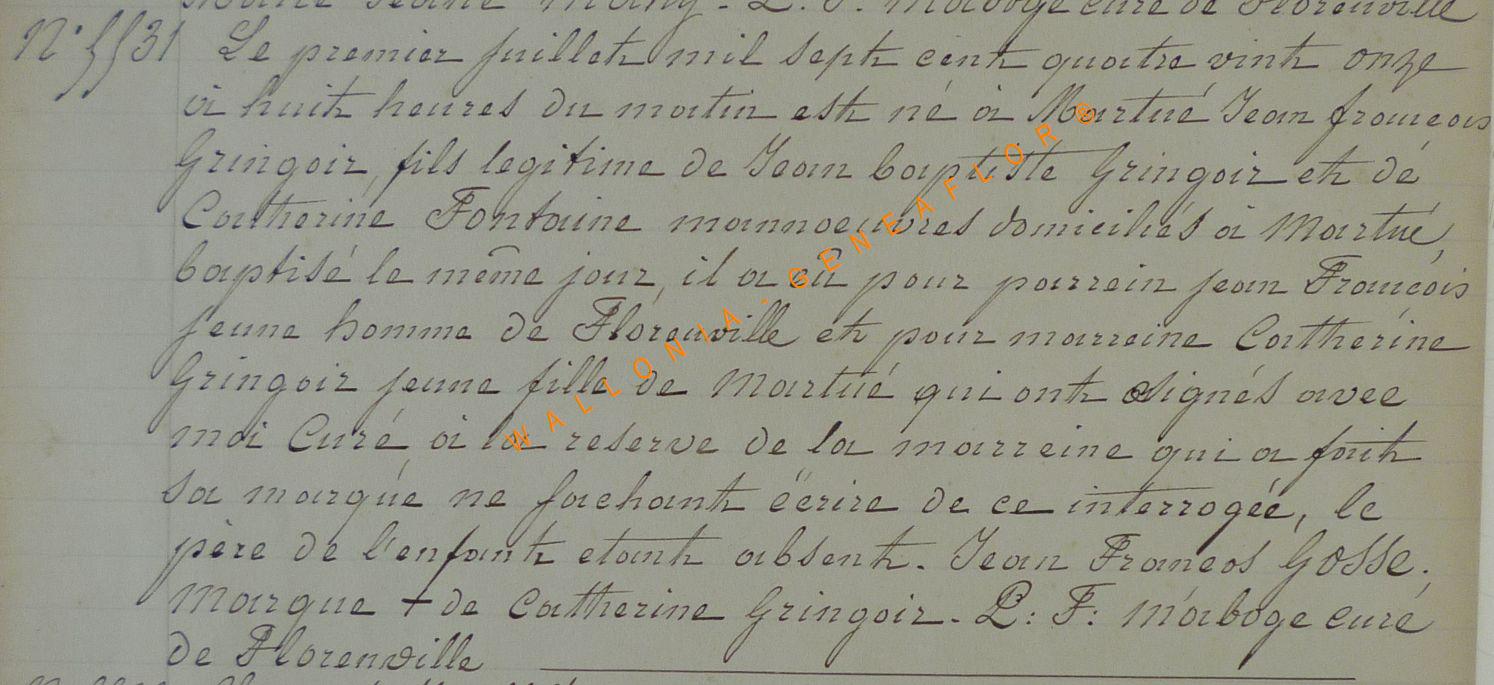 Marie Jeanne Mahy. L. F. Maboge curé de Florenville
N° 5531 Le premier juillet mil sept cent quatre vint onze
à huit heures du matin est né à Martué Jean françois
Gringoir, fils legitime de Jean baptiste Gringoir et dé
Catherine Fontaine mannoeuvres domiciliés à Martué,
baptisé le même jour, il a eû pour parrein jean François
jeune homme de Florenville et pour marreine Catherine
Gringoir jeune fille de Martué qui ont signés avec
moi Curé à la reserve de la marreine qui a fait
sa marque ne sachant écrire de ce interrogée, le
père de l'enfant etant absent. Jean Francos Gosse.
Marque + de Catherine Gringoir. L: F: Maboge curé
de Florenville
WALLONIA-GENEAFLOR©